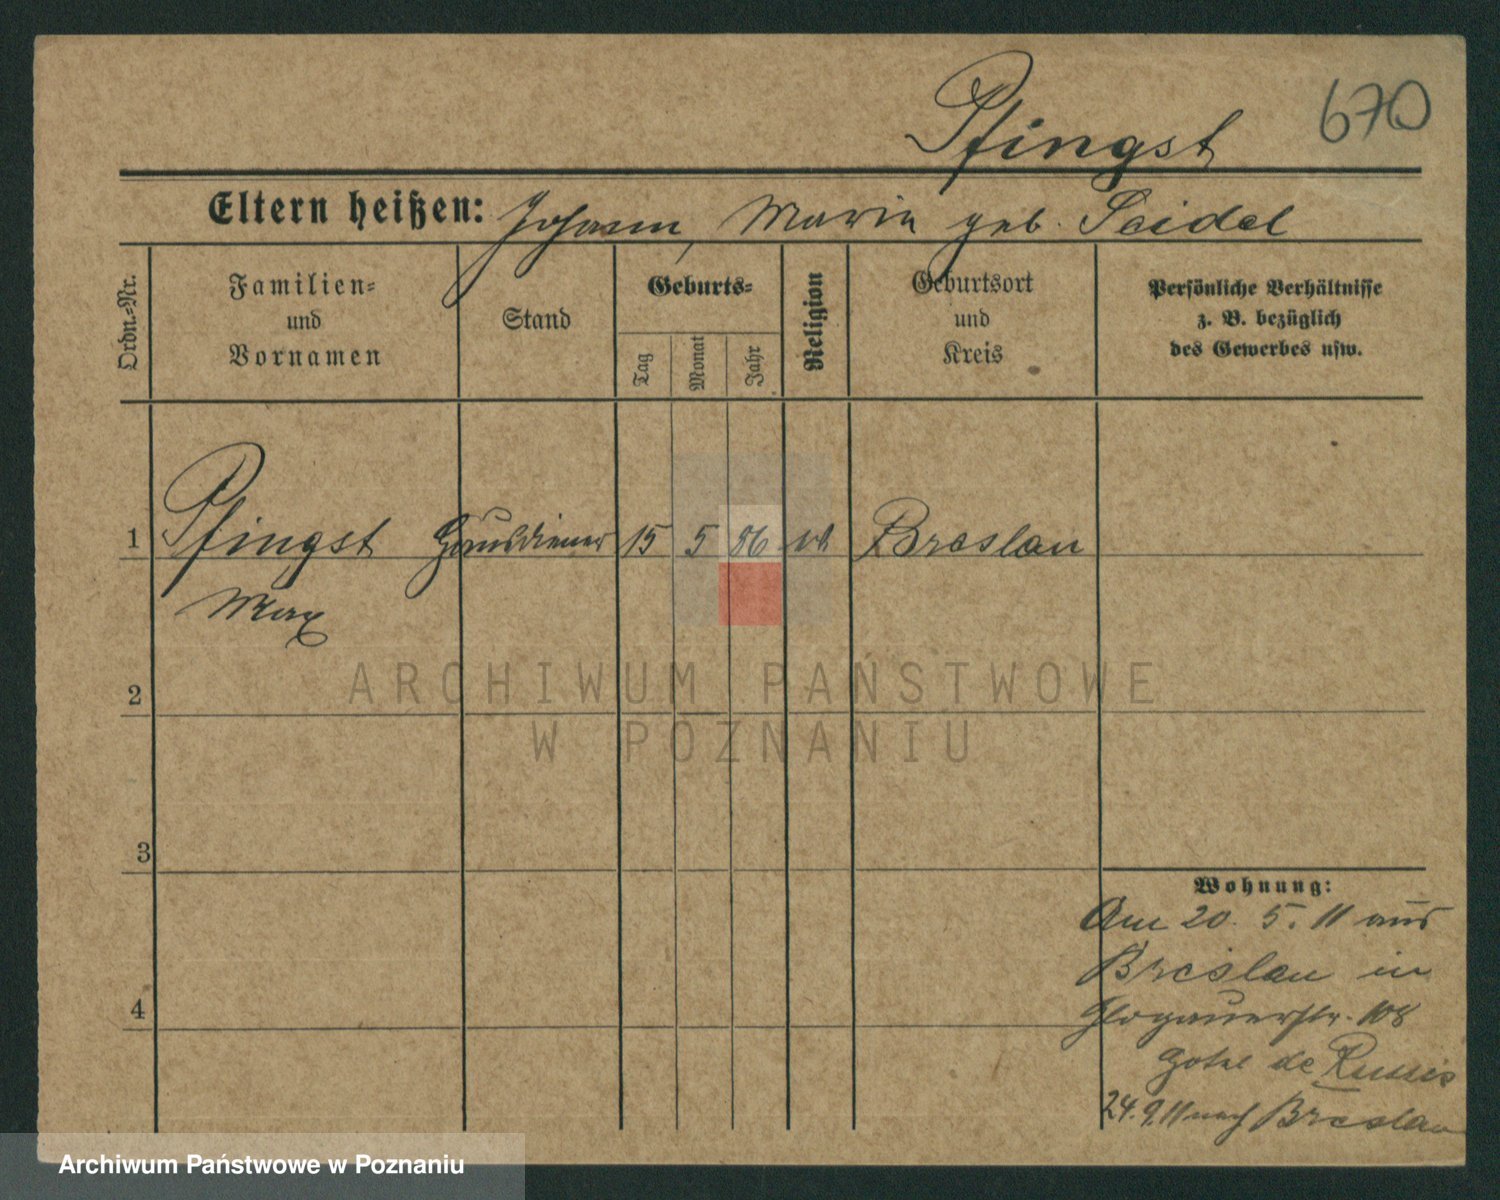 Pfingst
670
Eltern heißen: Johann, Maria geb. Seidel
Ordn.-Nr.
Familien-
und
Vornamen
Stand
Geburts-
Tag
Monat
Jahr
Religion
Geburtsort
und
Kreis
Persönliche Verhältnisse
z. B. bezüglich
des Gewerbes usw.
1 Pfingst Hausdiener 15 5 86 Breslau
Max
ARCHIWUM PAŃSTWOWE
W POZNANIU
2
3
4
Wohnung:
Am 20. 5. 11 aus
Breslau in
Glogauerstr. 108
Hotel de
24. 9. 11 nach Breslau
Archiwum Państwowe w Poznaniu